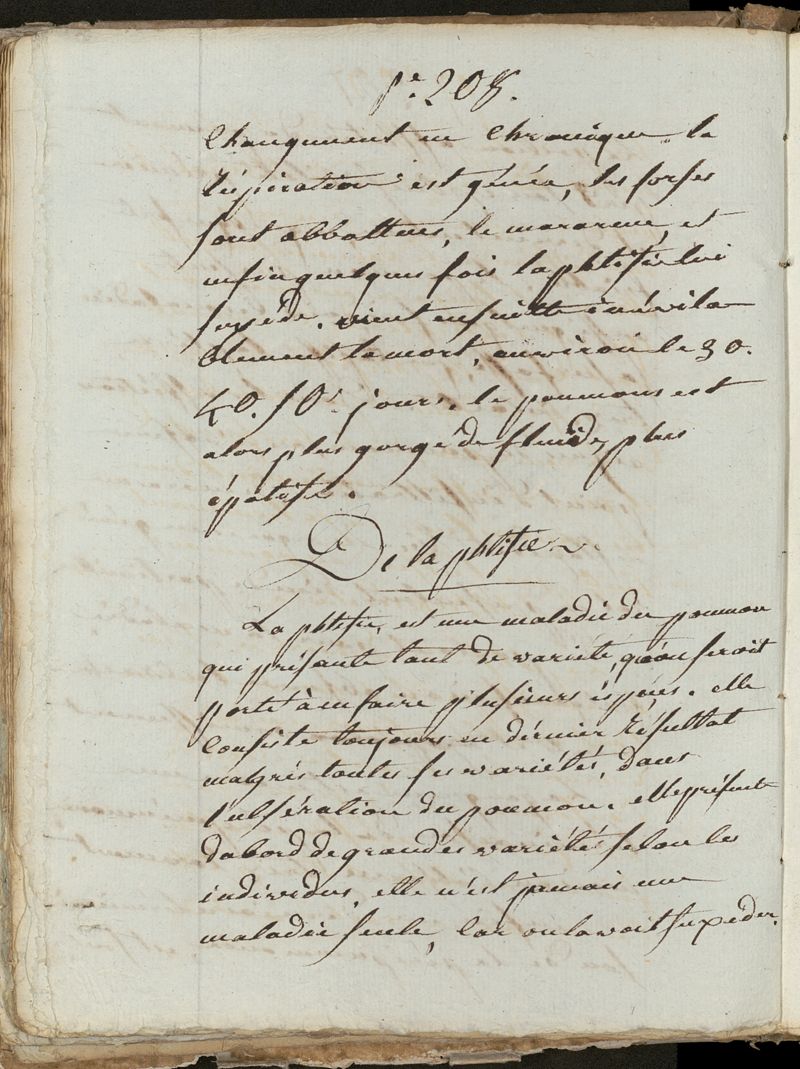 pe. 208.
Changement en chronique. la
réspiration est génée, les forses
sont abbattues, le marasme, et
enfin quelques fois la phtisie lui
suxséde. vient ensuitte inévita
blement la mort, environ le 30.
40. 50e jours. le poumons est
alors plus gorgé de fluide, plus
épatisé.
De la phtisie
La phtisie, est une maladie du poumon
qui présante tant de variété, qu'on seroit
porté à en faire plusieurs éspéces. elle
consiste toujours en dérnier résultat
malgrés toutes ses variétés, dans
l'ulsération du poumon. elle présente
dabord de grandes variétés selon les
individus, elle n'est jamais une
maladie seule, car on la voit suxéder